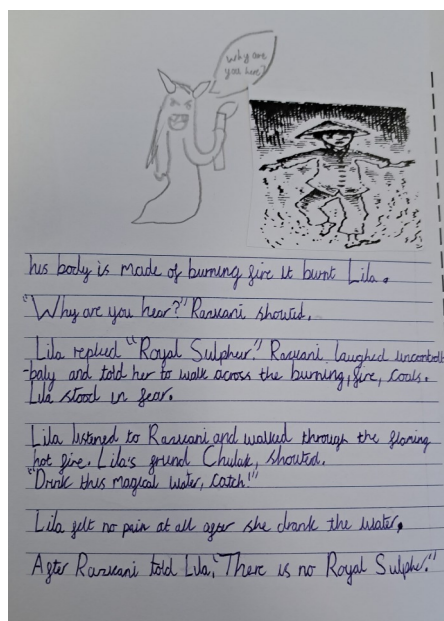 Why are
you here?
his body is made of burning fire it burnt Lila.
"Why are you hear?" Razvani shouted.
Lila replied "Royal Sulpher." Razvani laughed uncontroll
-baly and told her to walk across the burning, fire, coals.
Lila stood in fear.
Lila listined to Razvani and walked through the flaming
hot fire. Lila's friend Chulak, shouted.
"Drink this magical water, catch!"
Lila felt no pain at all after she drank the water.
After Razvani told Lila, "There is no Royal Sulpher."